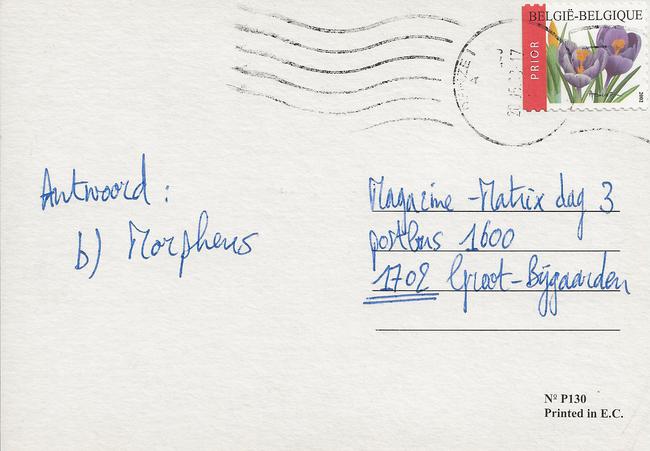 BELGIË-BELGIQUE
PRIOR
2002
Antwoord :
b) Morpheus
Magazine - Matrix dag 3
postbus 1600
1702 Groot-Bijgaarden
Nº P130
Printed in E.C.